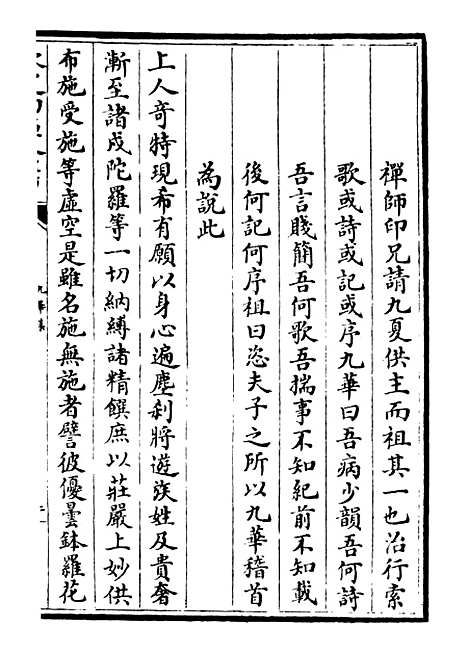 禪師印兄請九夏供主而祖其一也治行索
歌或詩或記或序九華曰吾病少韻吾何詩
吾言賤簡吾何歌吾揣事不知紀前不知載
後何記何序祖曰恣夫子之所以九華稽首
為說此
上人奇特現希有願以身心遍塵刹將遊族姓及貴奢
漸至諸戍陀羅等一切納縛諸精饌庶以莊嚴上妙供
布施受施等虛空是雖名施無施者譬彼優曇鉢羅花
九華集